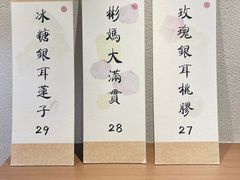 玫瑰銀耳桃膠
27
彬媽大滿貫
28
冰糖銀耳蓮子
29